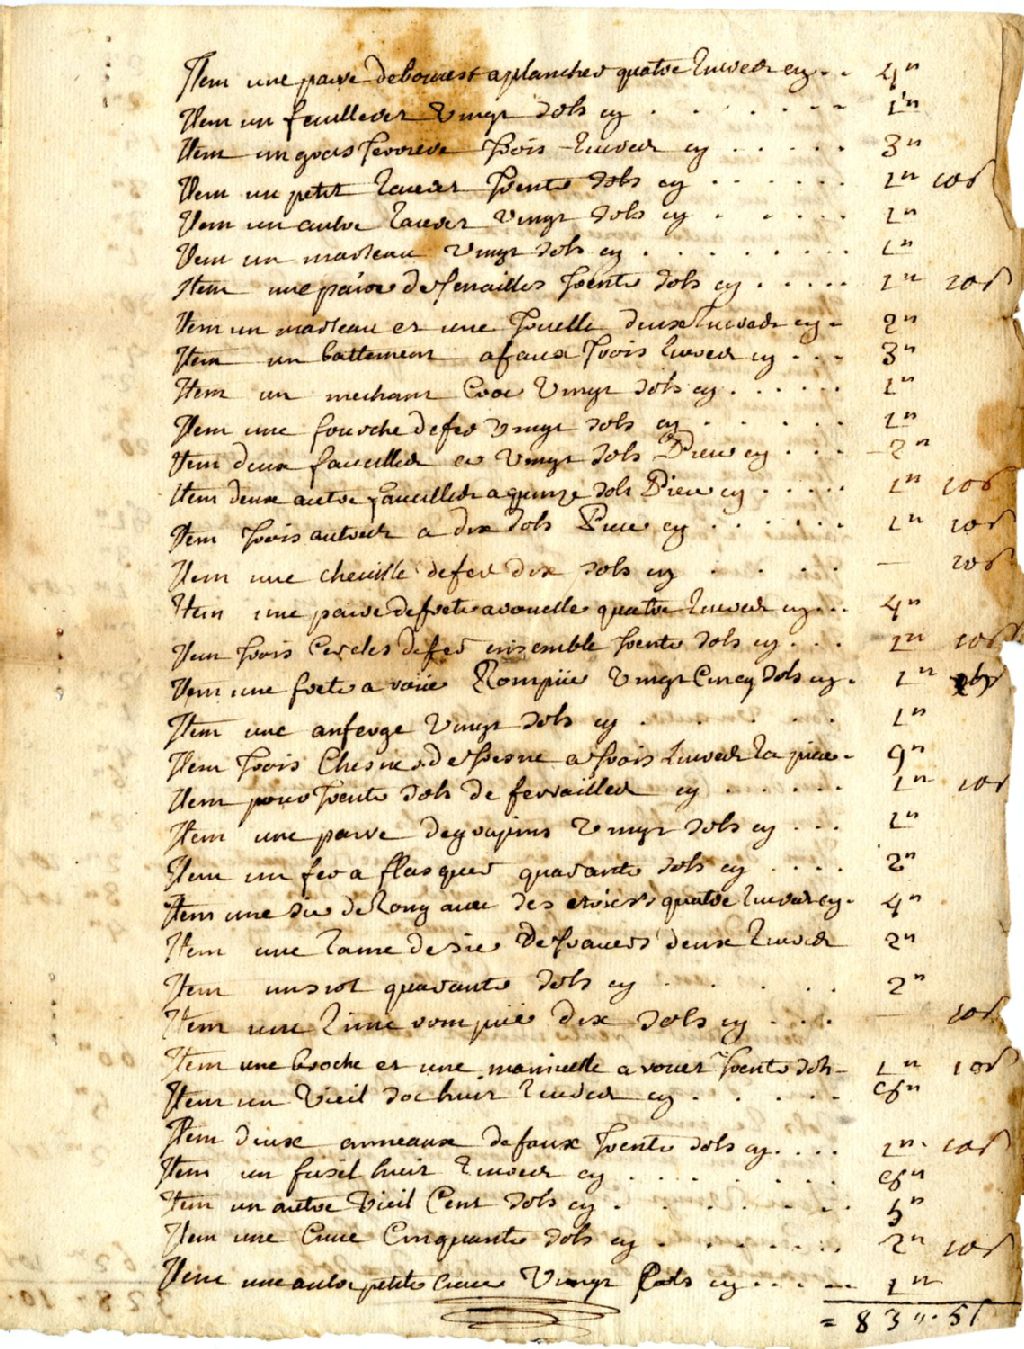 Item une paire de bouvest a planches quatre Livres cy . . 4"
Item un feuilleret vingt sols cy . . . . . . . 1"
Item un gros trois Livres cy . . . . . 3"
Item un petit trente sols cy . . . . . . 1" 10s
Item un autre vingt sols cy . . . . . 1"
Item un marteau vingt sols cy . . . . . . . . 1"
Item une paire de tenailles trente sols cy . . . . . 1" 10s
Item un marteau et une truelle deux Livres cy - 2"
Item un battement a faux trois Livres cy . . . 3"
Item un mechant croc vingt sols cy . . . . . . 1"
Item une fourche de fer vingt sols cy . . . . . . 1"
Item deux faucilles a vingt sols Piece cy . . . 2"
Item deux autre faucilles a quinze sols Piece cy . . . . . 1" 10s
Item trois autres a dix sols Piece cy . . . . . . . 1" 10s
Item une cheville de fer dix sols cy . . . . . — 10s
Item une paire de frete a rouelle quatre Livres cy . . . 4"
Item trois Cercles de fer ensemble trente sols cy . . . 1" 10s
Item une frete a roüe Rompüe vingt Cincq sols cy . 1" 5s
Item une vingt sols cy . . . . . . 1"
Item trois de fresne a trois Livres La piece - 9"
Item pour trente sols de ferrailles cy . . . . . . 1" 10s
Item une paire de grapins vingt sols cy . . . 1"
Item un fer a flasques quarante sols cy . . . . 2"
Item une sie de Long avec des quatre Livres cy . 4"
Item une Lame de sie de travers deux Livres 2"
Item un sciot quarante sols cy . . . . . . 2"
Item une Lime rompuë dix sols cy . . . . — 10s
Item une broche et une manivelle a trente sols - 1" 10s
Item un Vieil soc huit Livres cy . . . . . . 8"
Item deux anneaux de faux trente sols cy . . . . 1" . 10s
Item un fusil huit Livres cy . . . . . . . 8"
Item un autre Vieil Cent sols cy . . . . . . . 5"
Item une Cuve Cinquante sols cy . . . . . . . 2" 10s
Item une autre petite Cuve Vingt sols cy . . . . — 1"
= 83". 5s
328". 10.